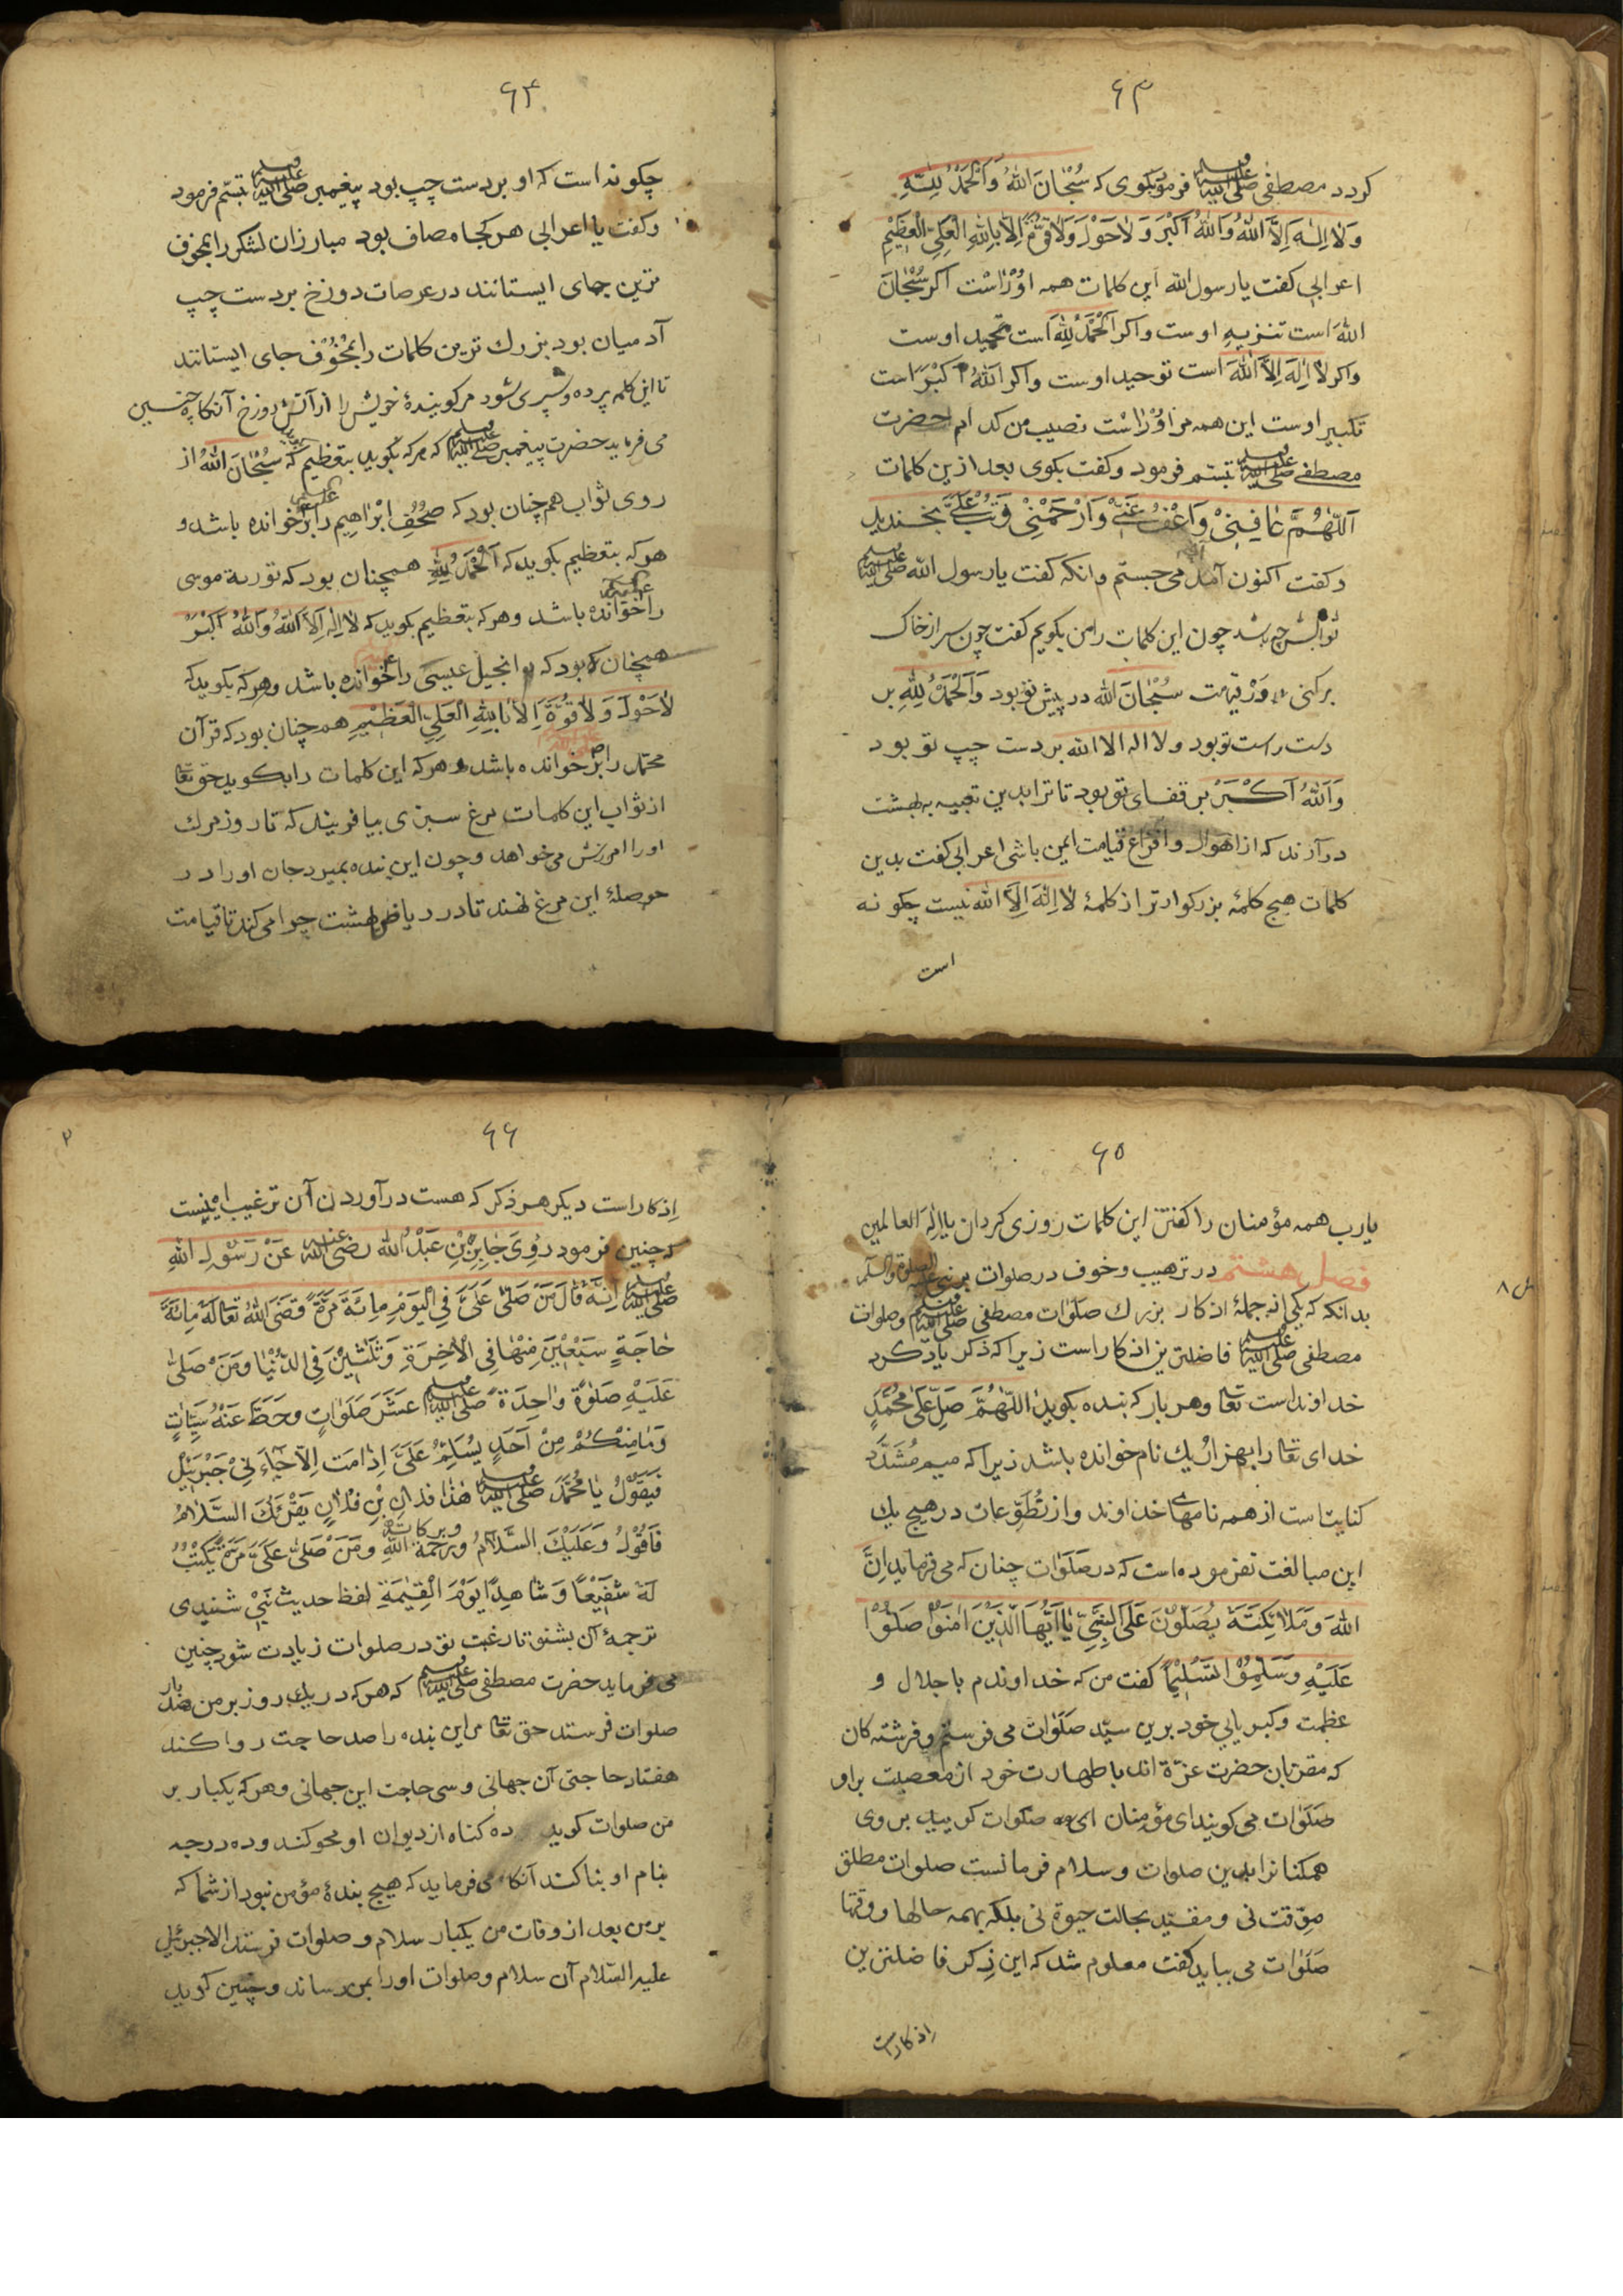 ۶۳
کردد مصطفی صلی الله علیه وسلم فرمود بکوی که سُبْحَانَ اللّٰهِ وَالْحَمْدُ لِلّٰهِ
وَلَا اِلٰهَ اِلَّا اللّٰهُ وَاللّٰهُ اَكْبَرُ وَلَا حَوْلَ وَلَا قُوَّةَ اِلَّا بِاللّٰهِ الْعَلِيِّ الْعَظِيْمِ
اعرابی کفت یا رسول الله این کلمات همه اوْرَاسْت اکر سُبْحَانَ
اللّٰهَ است تنزیهِ اوست واکر اَلْحَمْدُ لِلّٰهِ است تحمید اوست
واکر لَا اِلٰهَ اِلَّا اللّٰهَ است توحید اوست واکر اَللّٰهُ اَكْبَرْ است
تکبیر اوست این همه مر اوْرَاسْت نصیب من کدام حضرت
مصطفی صلی الله علیه وسلم تبسّم فرمود وکفت بکوی بعد ازین کلمات
اَللّٰهُمَّ عَافِنِیْ وَاعْفُ عَنِّیْ وَارْحَمْنِیْ وَتُبْ عَلَیَّ بخندید
وکفت اکنون آمد می جستم وانکه کفت یا رسول الله صلی الله علیه وسلم
ثوابش چه باشد چون این کلمات را من بکویم کفت چون سر از خاک
برکنی در قیامت سُبْحَانَ الله در پیش تو بود وَالْحَمْدُ لِلّٰهِ بر
دست راست تو بود ولا اله الا الله بر دست چپ تو بود
وَاللّٰهُ اَكْبَرْ بر قفای تو بود تا ترا بدین تعبیه به بهشت
درآرند که از اهوال وافزاع قیامت ایمن باشی اعرابی کفت بدین
کلمات هیچ کلمهٔ بزرکوارتر از کلمهٔ لَا اِلٰهَ اِلَّا اللّٰه نیست چکونه
است
۶۴
چکونه است که او بر دست چپ بود پیغمبر صلی الله علیه وسلم تبسّم فرمود
وکفت یا اعرابی هر کجا مصاف بود مبارزان لشکر را بمخوف
ترین جای ایستانند در عرصات دوزخ بر دست چپ
آدمیان بود بزرك ترین کلمات را بمَخُوْف جای ایستانند
تا این کلمه پرده وسپری شود مر کویندهٔ خویش را از آتش دوزخ آنکاه چنین
می فرماید حضرت پیغمبر صلی الله علیه وسلم که هر که بکوید بتعظیم که سُبْحَانَ اللّٰه از
روی ثواب همچنان بود که صُحُفِ اِبْرَاهِیم را خوانده باشد و
هر که بتعظیم بکوید که اَلْحَمْدُ لِلّٰهِ همچنان بود که توریة موسی
را خوانده باشد وهر که بتعظیم بکوید که لَا اِلٰهَ اِلَّا اللّٰهُ وَاللّٰهُ اَكْبَرْ
همچنان بود که انجیل عیسی را خوانده باشد وهر که بکوید که
لَاحَوْلَ وَلَا قُوَّةَ اِلَّا بِاللّٰهِ الْعَلِيِّ الْعَظِيْمِ همچنان بود که قرآن
محمد را خوانده باشد وهر که این کلمات را بکوید حق تعا
از ثواب این کلمات مرغ سبزی بیافریند که تا روز مرك
اورا امرزش می خواهد وچون این بنده بمیرد جان اورا در
حوصلهٔ این مرغ نهند تا در ریاض بهشت چرا می کند تا قیامت
۶۵
یارب همه مؤمنان را کفتن این کلمات روزی کردان یا اِلٰهَ العالمین
فصل هشتم در ترهیب وخوف در صلوات بر نبی علیه الصلوة والسلم
بدانکه که یکی از جملهٔ اذکار بزرك صَلَوٰات مصطفی صلی الله علیه وسلم وصلوات
مصطفی صلی الله علیه وسلم فاضلترین اذکار است زیرا که ذکر یاد کرد
خداوند است تعا وهر بار که بنده بکوید اَللّٰهُمَّ صَلِّ عَلٰی مُحَمَّدٍ
خدای تعا را بهزار یك نام خوانده باشد زیرا که میم مُشَدَّد
کنایت است از همه نامهای خداوند واز تُطَوِّعات در هیچ یك
این مبالغت نفرموده است که در صَلَوٰات چنان که می فرماید اِنَّ
اللّٰهَ وَمَلَائِكَتَهُ يُصَلُّوْنَ عَلَى النَّبِيِّ يَا اَيُّهَا الَّذِيْنَ اٰمَنُوْا صَلُّوْا
عَلَيْهِ وَسَلِّمُوْا تَسْلِيْمًا کفت من که خداوندم با جلال و
عظمت وکبریایی خود برین سیّد صَلَوٰات می فرستم وفرشته کان
که مقرّبان حضرت عزّة اند با طهارت خود از معصیت بر او
صَلَوٰات می کویند ای مؤمنان صلوات کویید بر وی
همکنانرا بدین صلوات وسلام فرمانست صلوات مطلق
موّقت نی ومقیّد بحالت حیوة نی بلکه بهمه حالها ووقتها
صَلَوٰات می بباید کفت معلوم شد که این ذِکر فاضلترین
اذکاراست
۶۶
اِذکار است دیکر هر ذکر که هست در آوردن آن ترغیب اینست
که چنین فرمود رُوِیَ جَابِرِ بْنِ عَبْدُ الله رضی الله عنه عَنْ رَسُوْلِ اللّٰهِ
صلی الله علیه وسلم اَنَّهُ قَالَ مَنْ صَلَّى عَلَيَّ فِي الْيَوْمِ مِائَةَ مَرَّةٍ قَضَى اللّٰهُ تَعَالٰى لَهُ مِائَةَ
حَاجَةٍ سَبْعِيْنَ مِنْهَا فِي الْاٰخِرَةِ وَثَلٰثِيْنَ فِي الدُّنْيَا وَمَنْ صَلَّى
عَلَيْهِ صَلٰوةً وَاحِدَةً صلی الله علیه وسلم عَشَرَ صَلَوَاتٍ وَحَطَّ عَنْهُ سَيِّاٰتٍ
وَمَا مِنْكُمْ مِنْ اَحَدٍ يُسَلِّمُ عَلَيَّ اِذَا مَتُّ اِلَّا جَاءَنِيْ جَبْرَئِيْلُ
فَيَقُوْلُ يَا مُحَمَّدُ صلی الله علیه وسلم هٰذَا فلان بْنِ فُلَانٍ يَقْرَئُكَ السَّلَامُ
فَاَقُوْلُ وَعَلَيْكَ السَّلَامُ وَرَحْمَةُ اللّٰهِ وبرکاته وَمَنْ صَلَّى عَلَيَّ مَرَّةً كُنْتُ
لَهُ شَفِيْعًا وَشَاهِدًا يَوْمَ الْقِيٰمَةِ لفظ حدیث نَبِیْ شنیدی
ترجمهٔ آن بشنو تا رغبت تو در صلوات زیادت شود چنین
می فرماید حضرت مصطفی صلی الله علیه وسلم که هر که در یك روز بر من صد بار
صلوات فرستد حق تعا مر این بنده را صد حاجت روا کند
هفتاد حاجتی آن جهانی وسی حاجت این جهانی وهر که یکبار بر
من صلوات کوید ده کناه از دیوان او محو کند وده درجه
بنام او بنا کند آنکاه می فرماید که هیچ بندهٔ مؤمن نبود از شما که
بر من بعد از وفات من یکبار سلام وصلوات فرستد الا جبرئیل
علیه السّلام آن سلام وصلوات اورا بمن رساند وچنین کوید